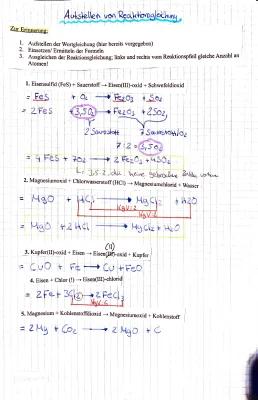 Aufstellen von Reaktionsgleichung
Zur Erinnerung:
1. Aufstellen der Wortgleichung (hier bereits vorgegeben)
2. Einsetzen/ Ermitteln der Formeln
3. Ausgleichen der Reaktionsgleichung; links und rechts vom Reaktionspfeil gleiche Anzahl an Atomen!
1. Eisensulfid (FeS) + Sauerstoff → Eisen(III)-oxid + Schwefeldioxid
= FeS + O₂ → Fe₂O₃ + SO₂
= 2FeS + 3,5O₂ → Fe₂O₃ + 2SO₂
2 Sauerstoff 7
7:2 = 3,5O₂
= 4FeS + 7O₂ → 2Fe₂O₃ + 4SO₂
2. Magnesiumoxid + Chlorwasserstoff (HCl) → Magnesiumchlorid + Wasser
= MgO + HCl → MgCl₂ + H2O
KgV=2
KgV=2
= MgO + 2HCl → MgCl₂ + H₂O
(II)
3. Kupfer(II)-oxid + Eisen → Eisen(III)-oxid + Kupfer
= CuO + Fe → Cu + FeO
4. Eisen + Chlor (!) → Eisen(III)-chlorid
= 2Fe + 3Cl₂ → 2FeCl₃
KgV=6
5. Magnesium + Kohlenstoffdioxid → Magnesiumoxid + Kohlenstoff
= 2Mg + CO₂ → 2MgO + C